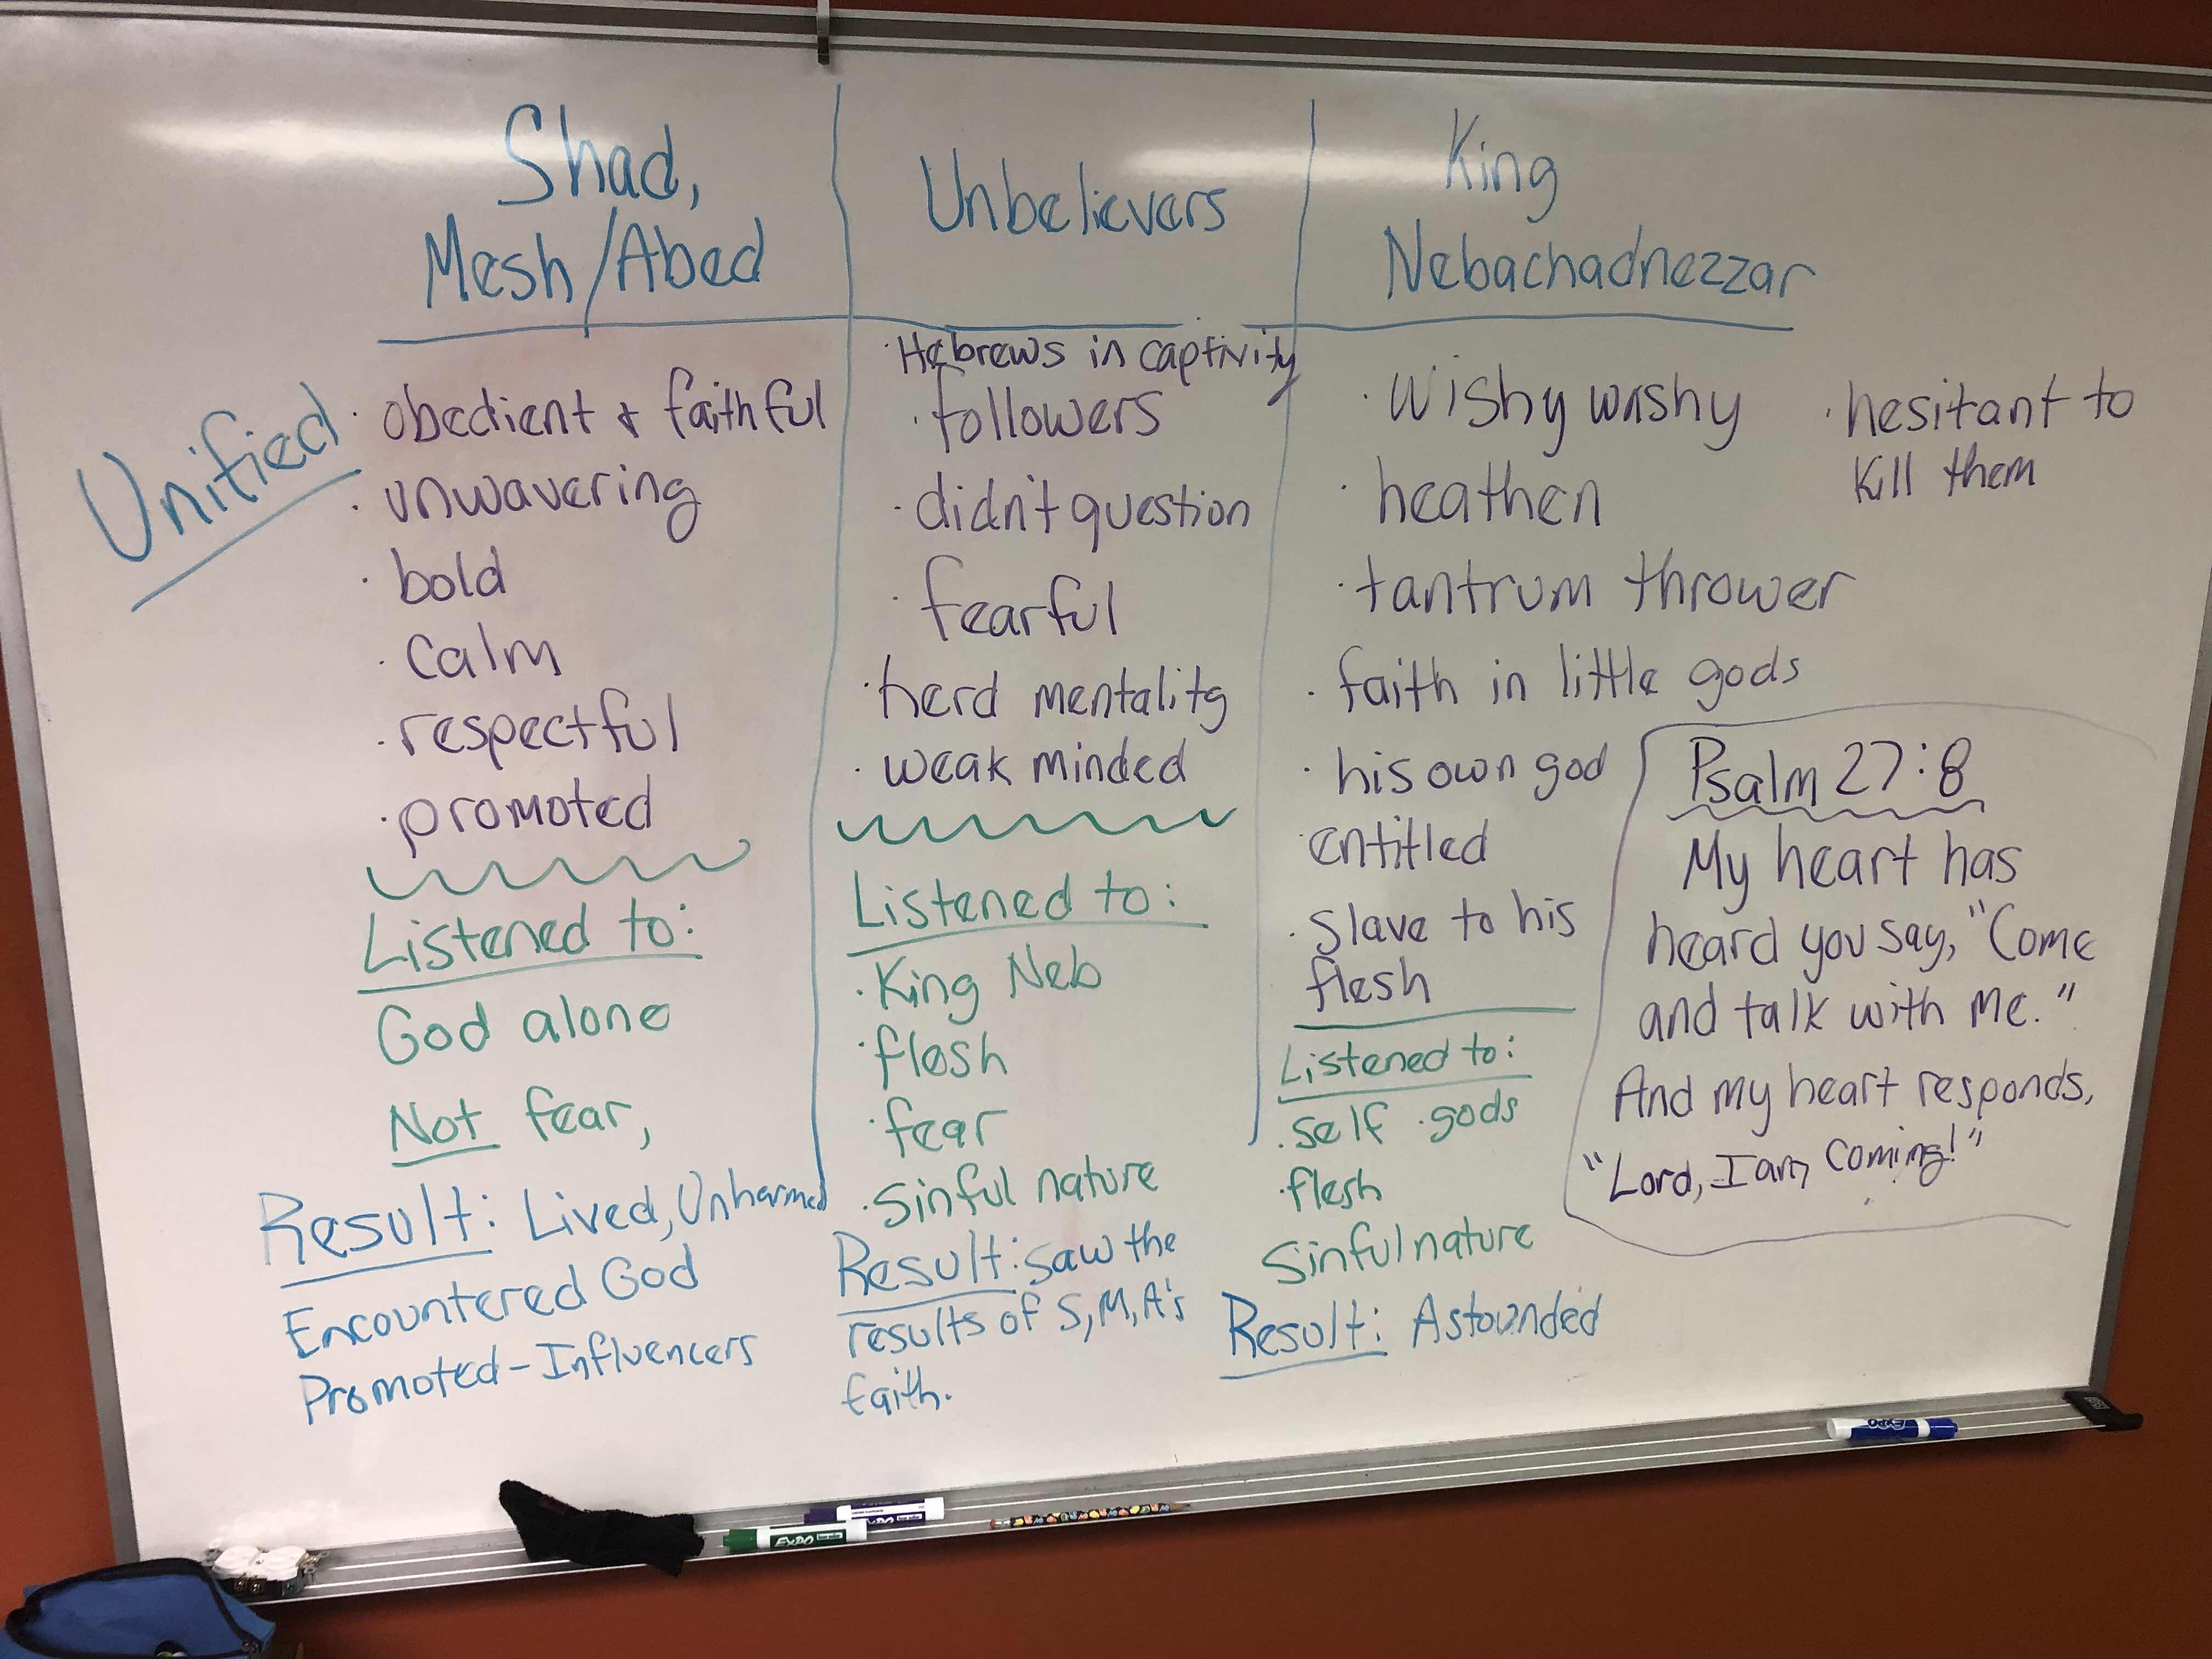 Shad,
Mesh/Abed
Unified
· obedient & faithful
· unwavering
· bold
· calm
· respectful
· promoted
Listened to:
God alone
Not fear,
Result: Lived, Unharmed
Encountered God
Promoted - Influencers
Unbelievers
· Hebrews in captivity
· followers
· didn't question
· fearful
· herd mentality
· weak minded
Listened to:
· King Neb
· flesh
· fear
· sinful nature
Result: saw the
results of S, M, A's
faith.
King
Nebachadnezzar
· wishy washy
· heathen
· tantrum thrower
· faith in little gods
· his own god
· entitled
· slave to his
flesh
· hesitant to
kill them
Listened to:
· self · gods
· flesh
sinful nature
Result: Astounded
Psalm 27:8
My heart has
heard you say, "Come
and talk with me."
And my heart responds,
"Lord, I am coming!"
EXPO
EXPO
EXPO